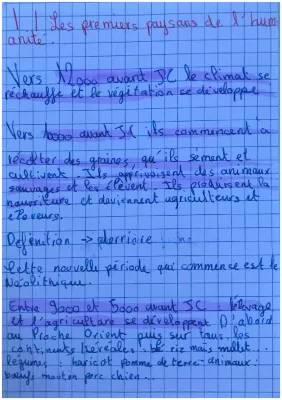 I / Les premiers paysans de l'hum
anité.
Vers 12000 avant JC le climat se
réchauffe et le végitation se développe
Vers 10000 avant JC ils commencent à
récolter des graines, qu'ils sèment et
cultivent. Ils apprivoisent des animaux
sauvages et les élèvent. Ils produisent la
nourriture et deviennent agriculteurs et
éleveurs.
Définition → derrière
Cette nouvelle période qui commence est le
Néolithique.
Entre 9000 et 5000 avant JC : l'élevage
et l'agriculture se développent D'abord
au Proche Orient puis sur tous les
continents (céréales : blé riz maïs millet...
légumes : haricot pomme de terre - animaux :
bœufs mouton porc chien...